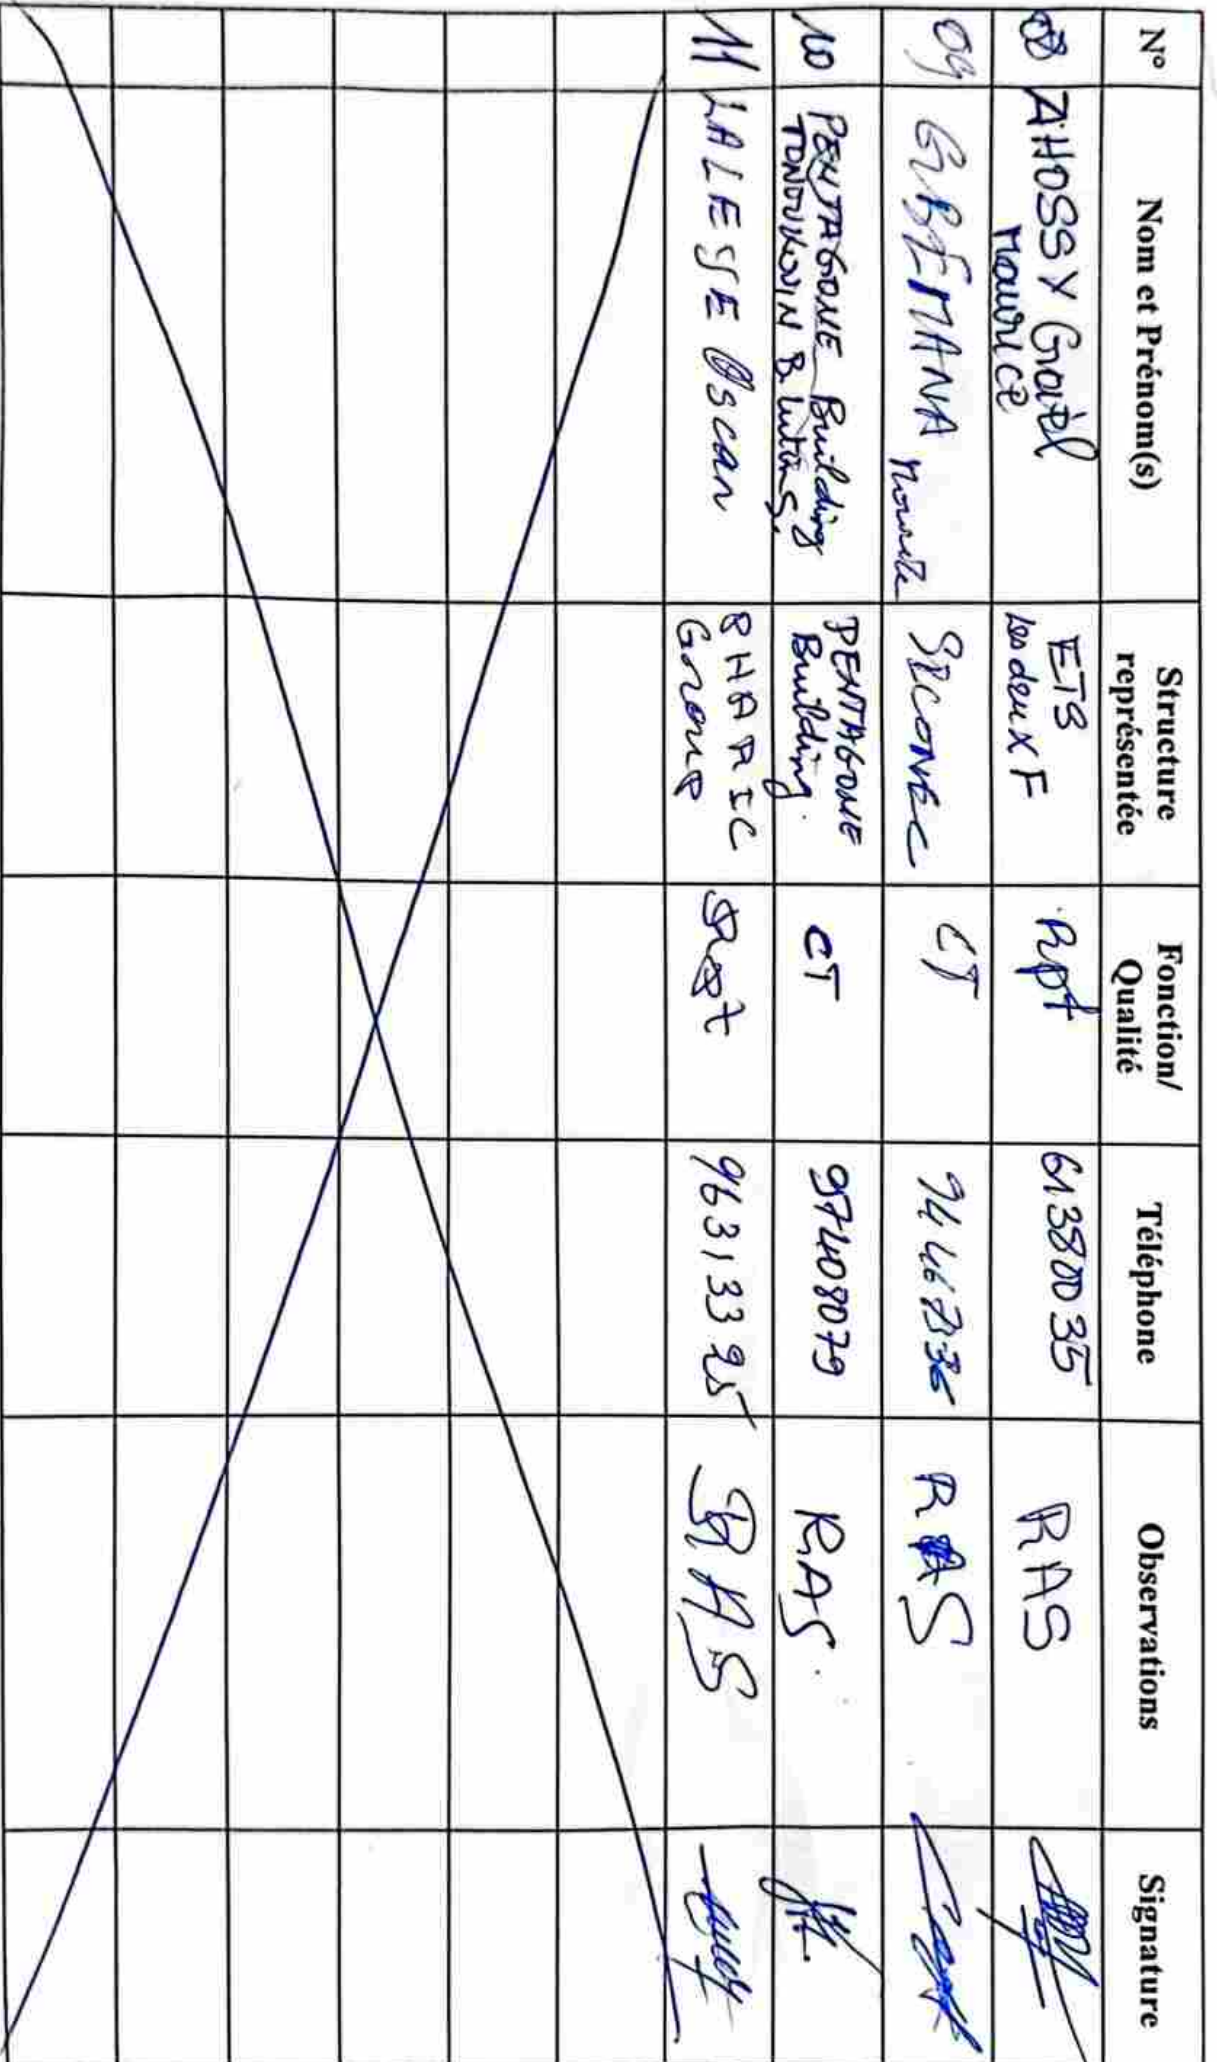 N° Nom et Prénom(s) Structure représentée Fonction/ Qualité Téléphone Observations Signature
08 AHOSSY Gaël Maurice ETS Les deux F Rpt 61380035 RAS
09 GBEMANA SICONEC CT RAS
10 PENTAGONE Building TONOUKOUIN B PENTAGONE Building. CT 97408079 RAS.
11 LALESSE Oscar PHARIC Group Rpt 96313395 RAS